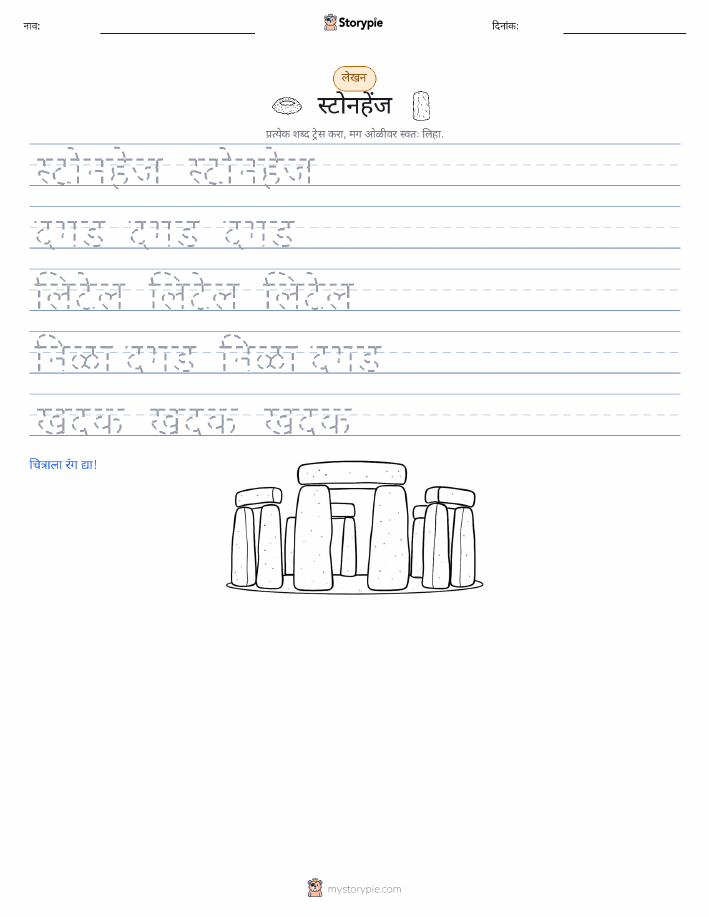 नाव:
Storypie
दिनांक:
लेखन
स्टोनहेंज
प्रत्येक शब्द ट्रेस करा, मग ओळीवर स्वतः लिहा.
स्टोनहेंज स्टोनहेंज
दगड दगड दगड
लिंटेल लिंटेल लिंटेल
निळा दगड निळा दगड
खंदक खंदक खंदक
चित्राला रंग द्या!
mystorypie.com